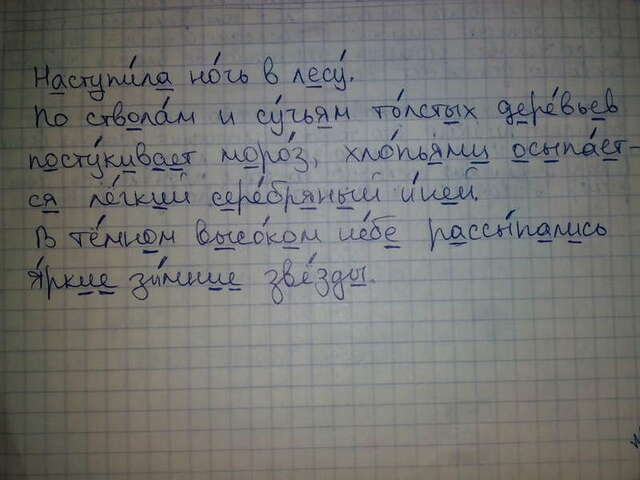 Наступи́ла но́чь в лесу́.
По ствола́м и су́чьям то́лстых дере́вьев
посту́кивает моро́з, хло́пья́ми осыпа́ет-
ся лё́гкий сере́бряный и́ней.
В тё́мном высо́ком не́бе рассы́пались
я́ркие зи́мние звё́зды.